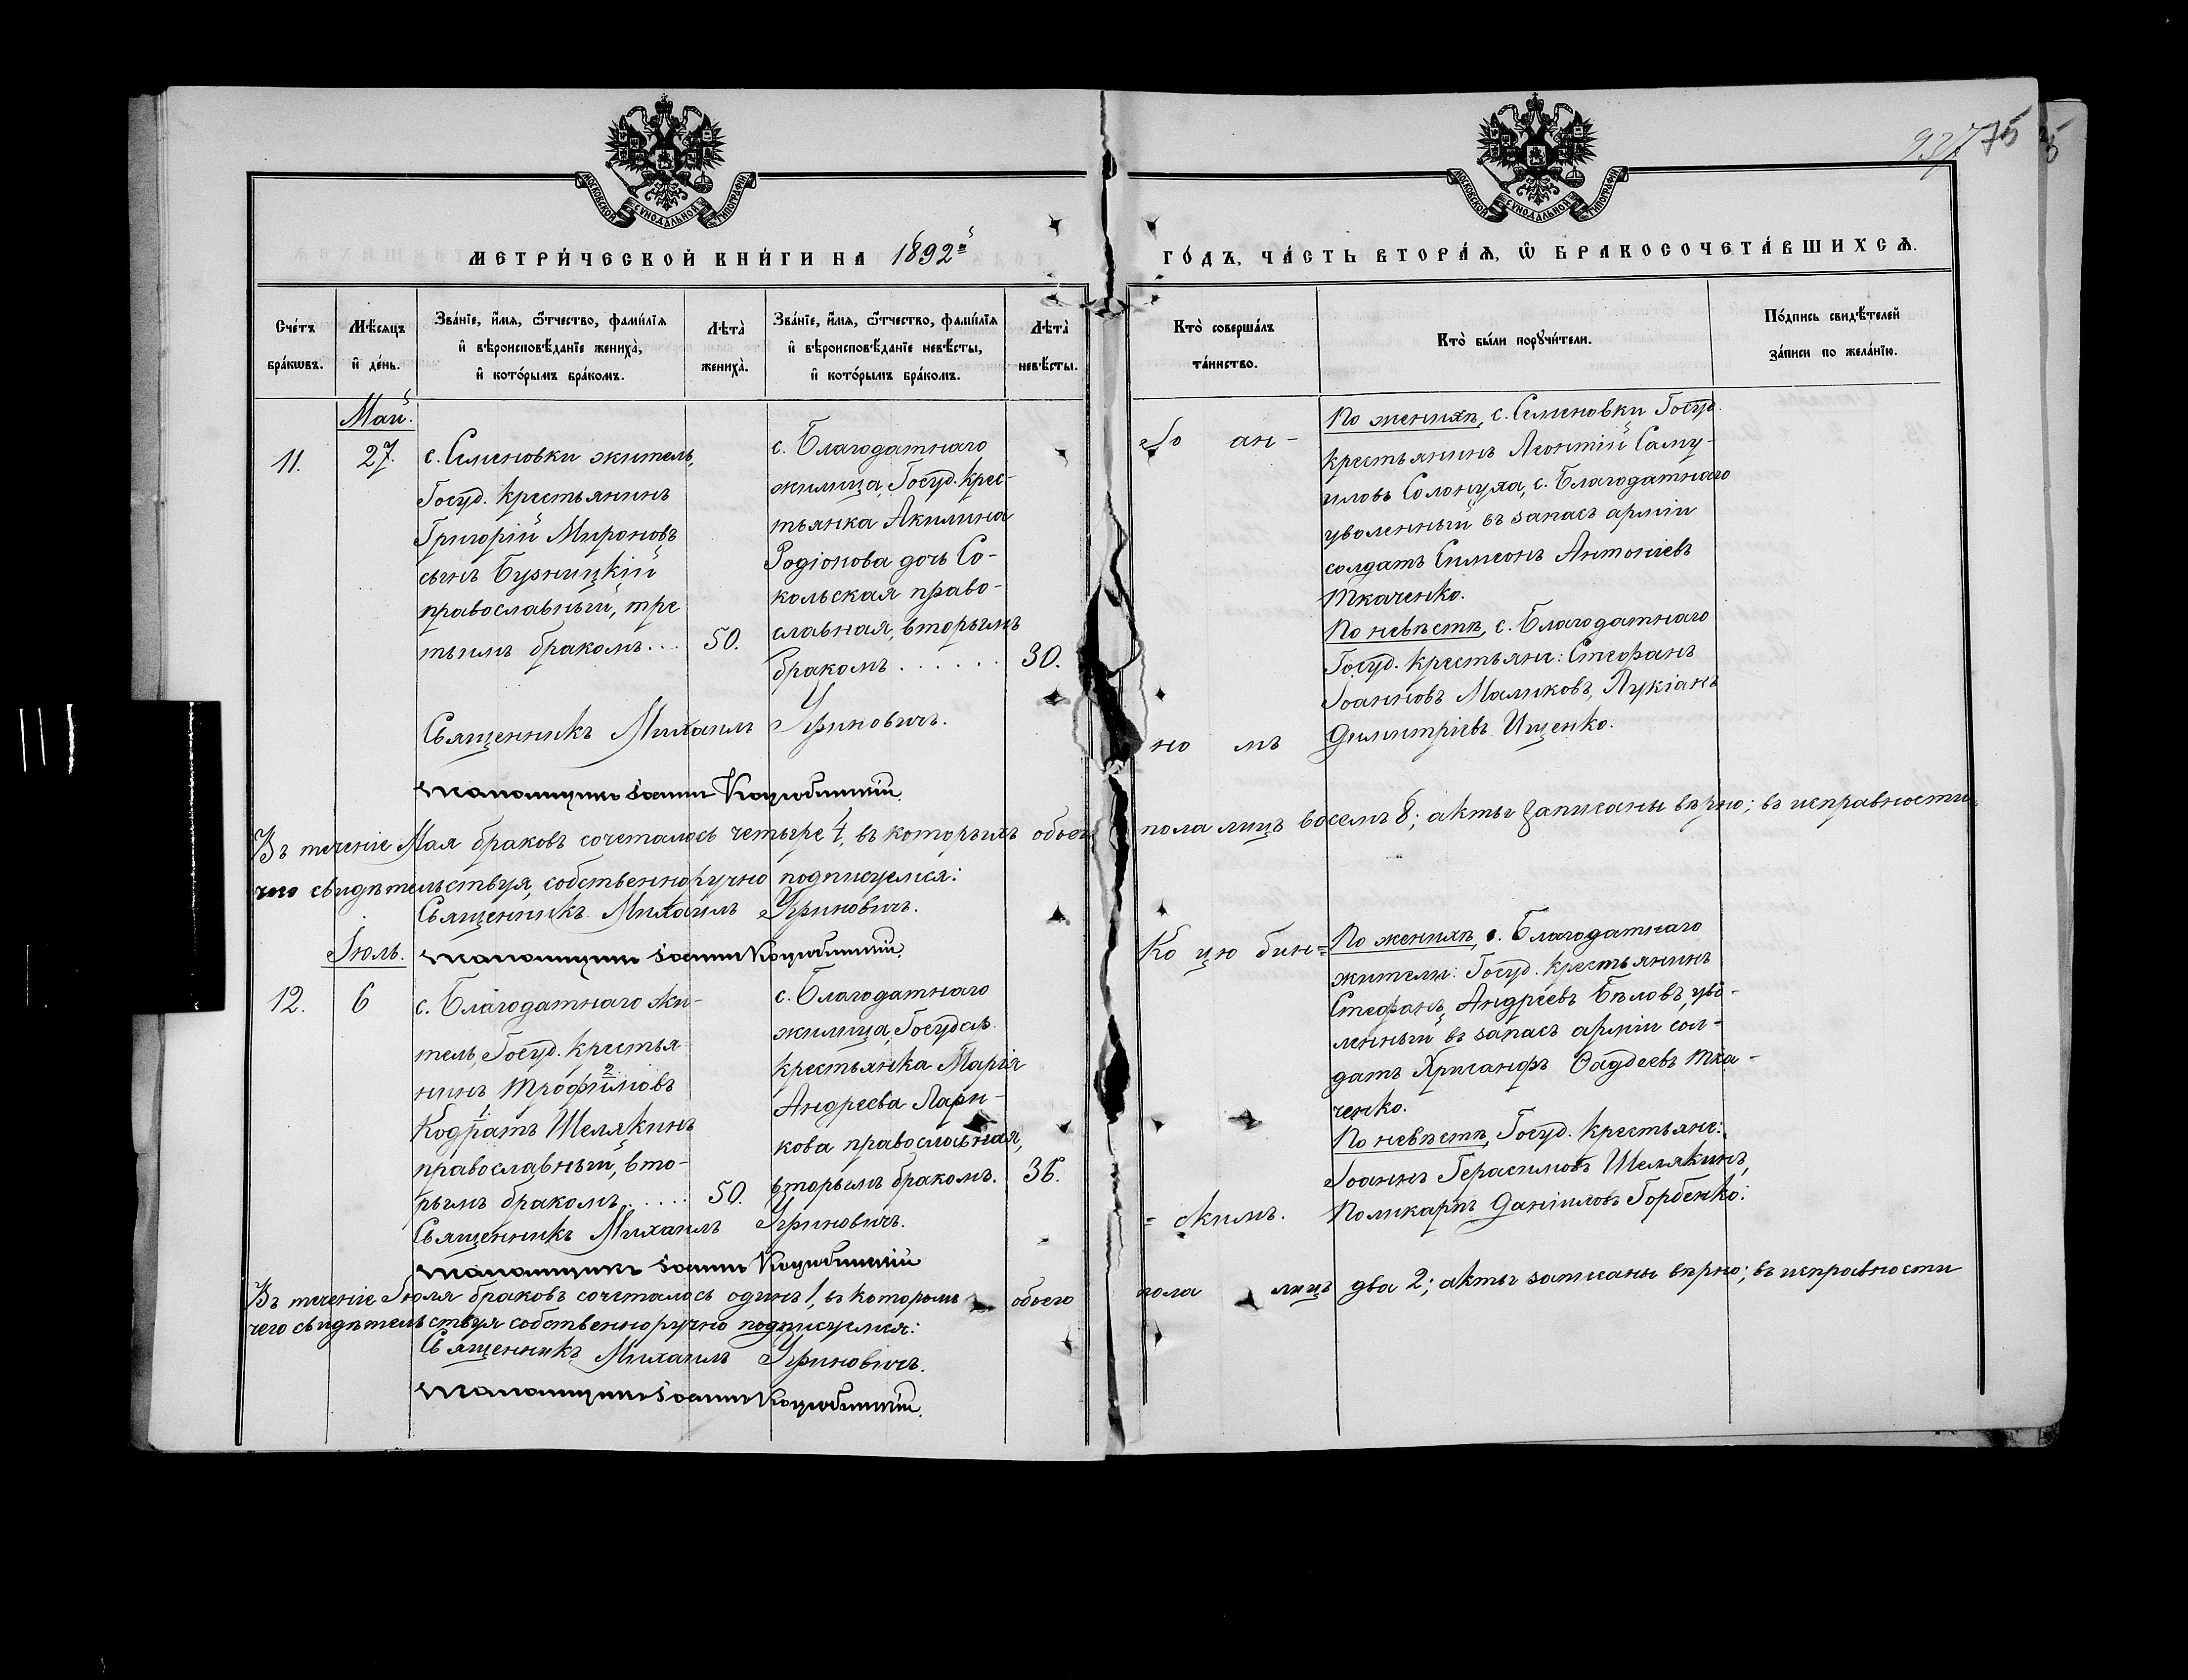 МОСКОВСКОЙ СѴНОДАЛЬНОЙ ТИПОГРАФІИ
МОСКОВСКОЙ СѴНОДАЛЬНОЙ ТИПОГРАФІИ
937 75
МЕТРИ́ЧЕСКОЙ КНИ́ГИ НА 1892й
ГО́ДЪ, ЧА́СТЬ ВТОРА́Ѧ, Ѡ҆ БРАКОСОЧЕТА́ВШИХСѦ.
Сче́тъ бра́кѡвъ.
Мѣ́сяцъ и҆ де́нь.
Зва́нїе, и҆́мя, ѻ҆́тчество, фами́лїя и҆ вѣроисповѣ́данїе жениха̀, и҆ кото́рымъ бра́комъ.
Лѣта̀ жениха̀.
Зва́нїе, и҆́мя, ѻ҆́тчество, фами́лїя и҆ вѣроисповѣ́данїе невѣ́сты, и҆ кото́рымъ бра́комъ.
Лѣта̀ невѣ́сты.
Кто̀ соверша́лъ та́инство.
Кто̀ бы́ли порꙋчи́тели.
По́дпись свидѣ́телей за́писи по жела́нїю.
Май.
11.
27.
с. Семеновки житель,
Госуд. крестьянинъ
Григорій Мироновъ
сынъ Бузницкій
православный, тре
тьимъ бракомъ....
50.
с. Благодатнаго
жилица, Госуд. крес-
тьянка Акилина
Родіонова дочь Со-
кольская право-
славная, вторымъ
бракомъ......
30.
Іо ан-
но мъ
По женихѣ, с. Семеновки Госуд.
крестьянинъ Леонтій Саму-
иловъ Солонуха, с. Благодатнаго
уволенный въ запасъ арміи
солдатъ Симеонъ Антоніевъ
Ткаченко.
По невѣстѣ, с. Благодатнаго
Госуд. крестьяне: Стефанъ
Іоанновъ Маликовъ, Лукіанъ
Димитріевъ Ищенко.
Священникъ Михаилъ Угриновичъ.
Псаломщикъ Іоаннъ Коцюбинскій.
Въ теченіе Мая браковъ сочеталось четыре 4, въ которыхъ обоего пола лицъ восемъ 8; акты записаны вѣрно; въ исправности
чего свидѣтельствуя, собственноручно подписуемся:
Священникъ Михаилъ Угриновичъ.
Псаломщикъ Іоаннъ Коцюбинскій.
Іюль.
12.
6
с. Благодатнаго жи-
тель, Госуд. крестья
нинъ Трофимовъ 2
Кодратъ 1. Шелякинъ
православный, вто-
рымъ бракомъ.....
50.
с. Благодатнаго
жилица, Государ.
крестьянка Марія
Андреева Лари-
кова православная,
вторымъ бракомъ.
36.
Ко цю бин=
= скимъ.
По женихѣ, с. Благодатнаго
жители: Госуд. крестьянинъ
Стефанъ Андреевъ Бѣловъ, уво-
ленный въ запасъ арміи сол-
датъ Хрисанфъ Ѳаддеевъ Тка-
ченко.
По невѣстѣ, Госуд. крестьяне:
Іоаннъ Герасимовъ Шелякинъ,
Поликарпъ Даніиловъ Горбенко.
Священникъ Михаилъ Угриновичъ.
Псаломщикъ Іоаннъ Коцюбинскій
Въ теченіе Іюля браковъ сочеталось одинъ 1, въ которомъ обоего пола лицъ два 2; акты записаны вѣрно; въ исправности
чего свидѣтельствуя собственноручно подписуемся:
Священникъ Михаилъ Угриновичъ.
Псаломщикъ Іоаннъ Коцюбинскій.